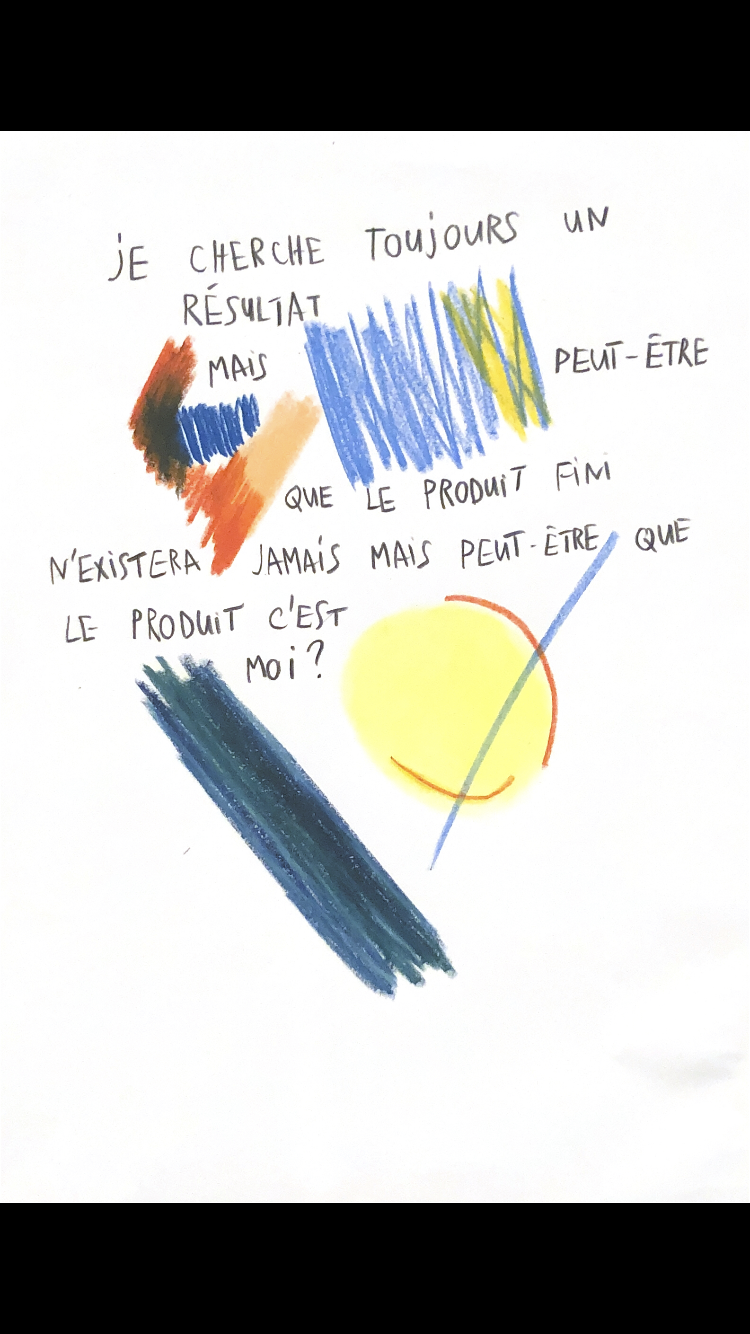 jE CHERCHE TOUjOURS UN
RÉSULTAT
MAIS PEUT-ÊTRE
QUE LE PRODUIT FINI
N'EXISTERA JAMAIS MAIS PEUT-ÊTRE QUE
LE PRODUIT C'EST
MOI ?